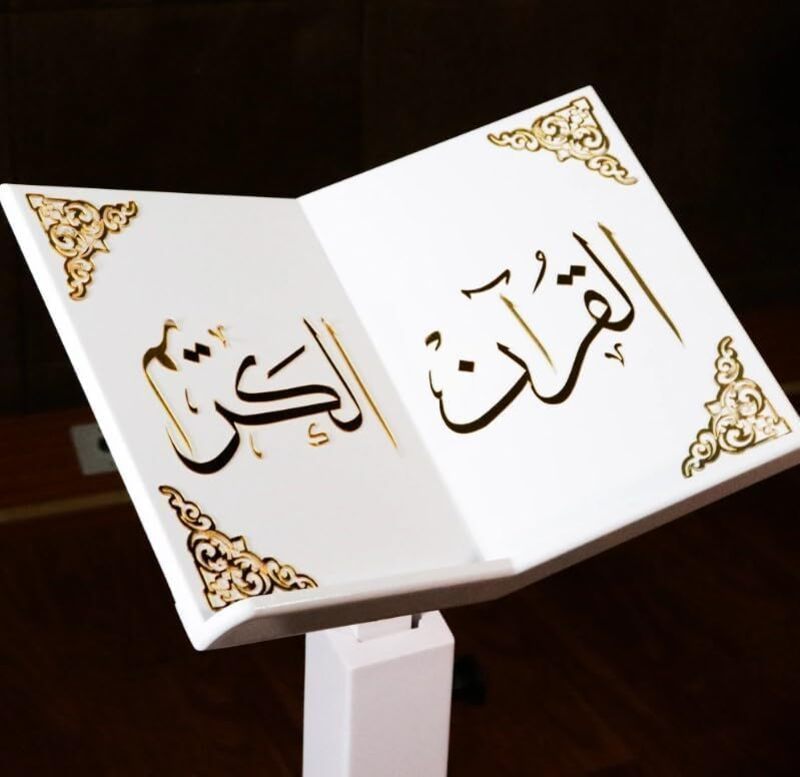 القرآن
الكريم